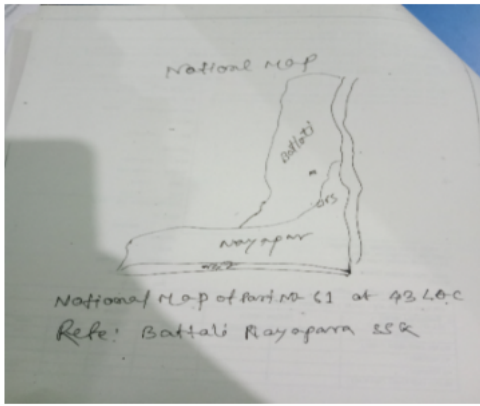 National Map
Battoti
ors
Nayapar
National Map of Part No 61 at 43 L.A.C
Refe: Battali Nayapara SSK